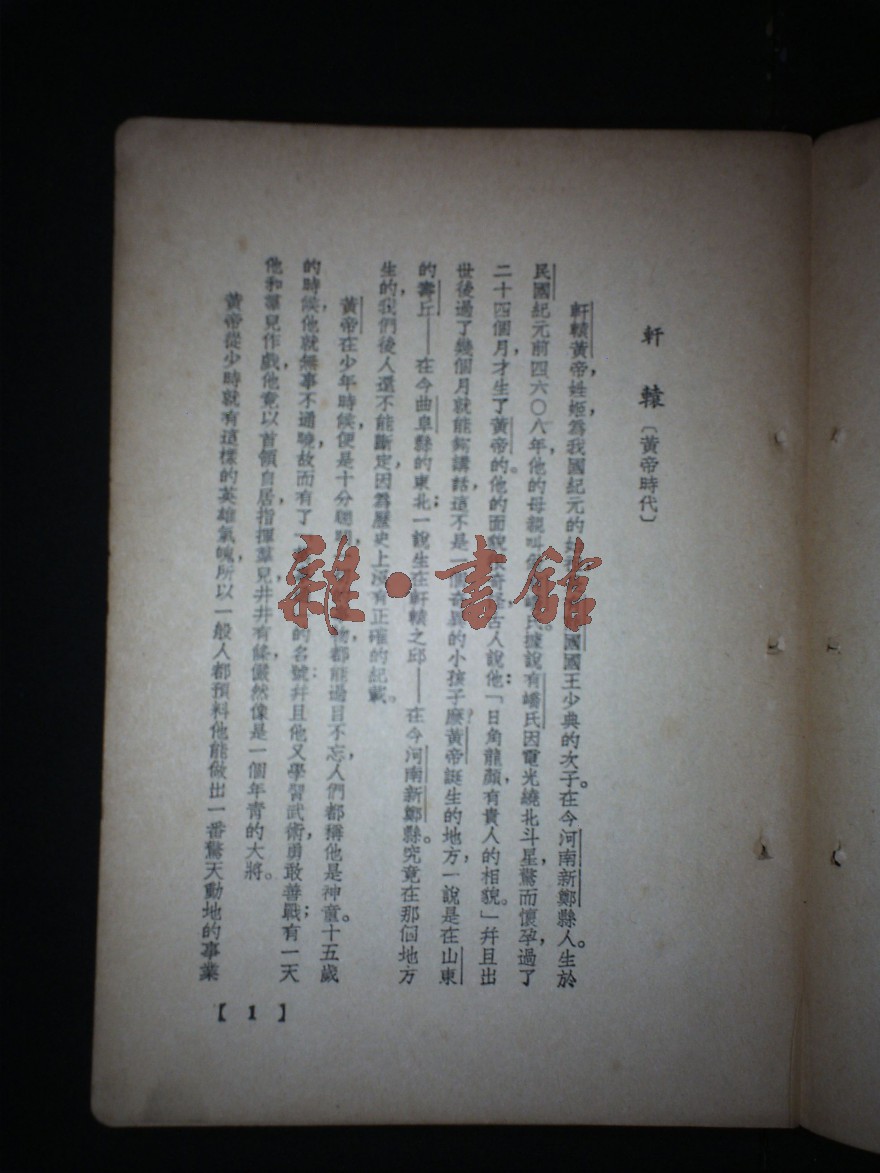 軒轅〔黃帝時代〕
軒轅黃帝，姓姬，為我國紀元的國國王少典的次子。在今河南新鄭縣人。生於
民國紀元前四六〇八年，他的母親叫氏。據說有蟜氏因電光繞北斗星，驚而懷孕，過了
二十四個月，才生了黃帝的。他的面貌古人說他：「日角龍顏，有貴人的相貌。」幷且出
世後過了幾個月就能夠講話，這不是一個奇異的小孩子麼？黃帝誕生的地方，一說是在山東
的壽丘——在今曲阜縣的東北；一說生在軒轅之邱——在今河南新鄭縣。究竟在那個地方
生的，我們後人還不能斷定，因為歷史上沒有正確的紀載。
黃帝在少年時候，便是十分聰明，物都能過目不忘，人們都稱他是神童。十五歲
的時候，他就無事不通曉，故而有了的名號；幷且他又學習武術，勇敢善戰；有一天
他和羣兒作戲，他竟以首領自居，指揮羣兒，井井有條，儼然像是一個年青的大將。
黃帝從少時就有這樣的英雄氣魄，所以一般人都預料他能做出一番驚天動地的事業
【1】
雜·書館